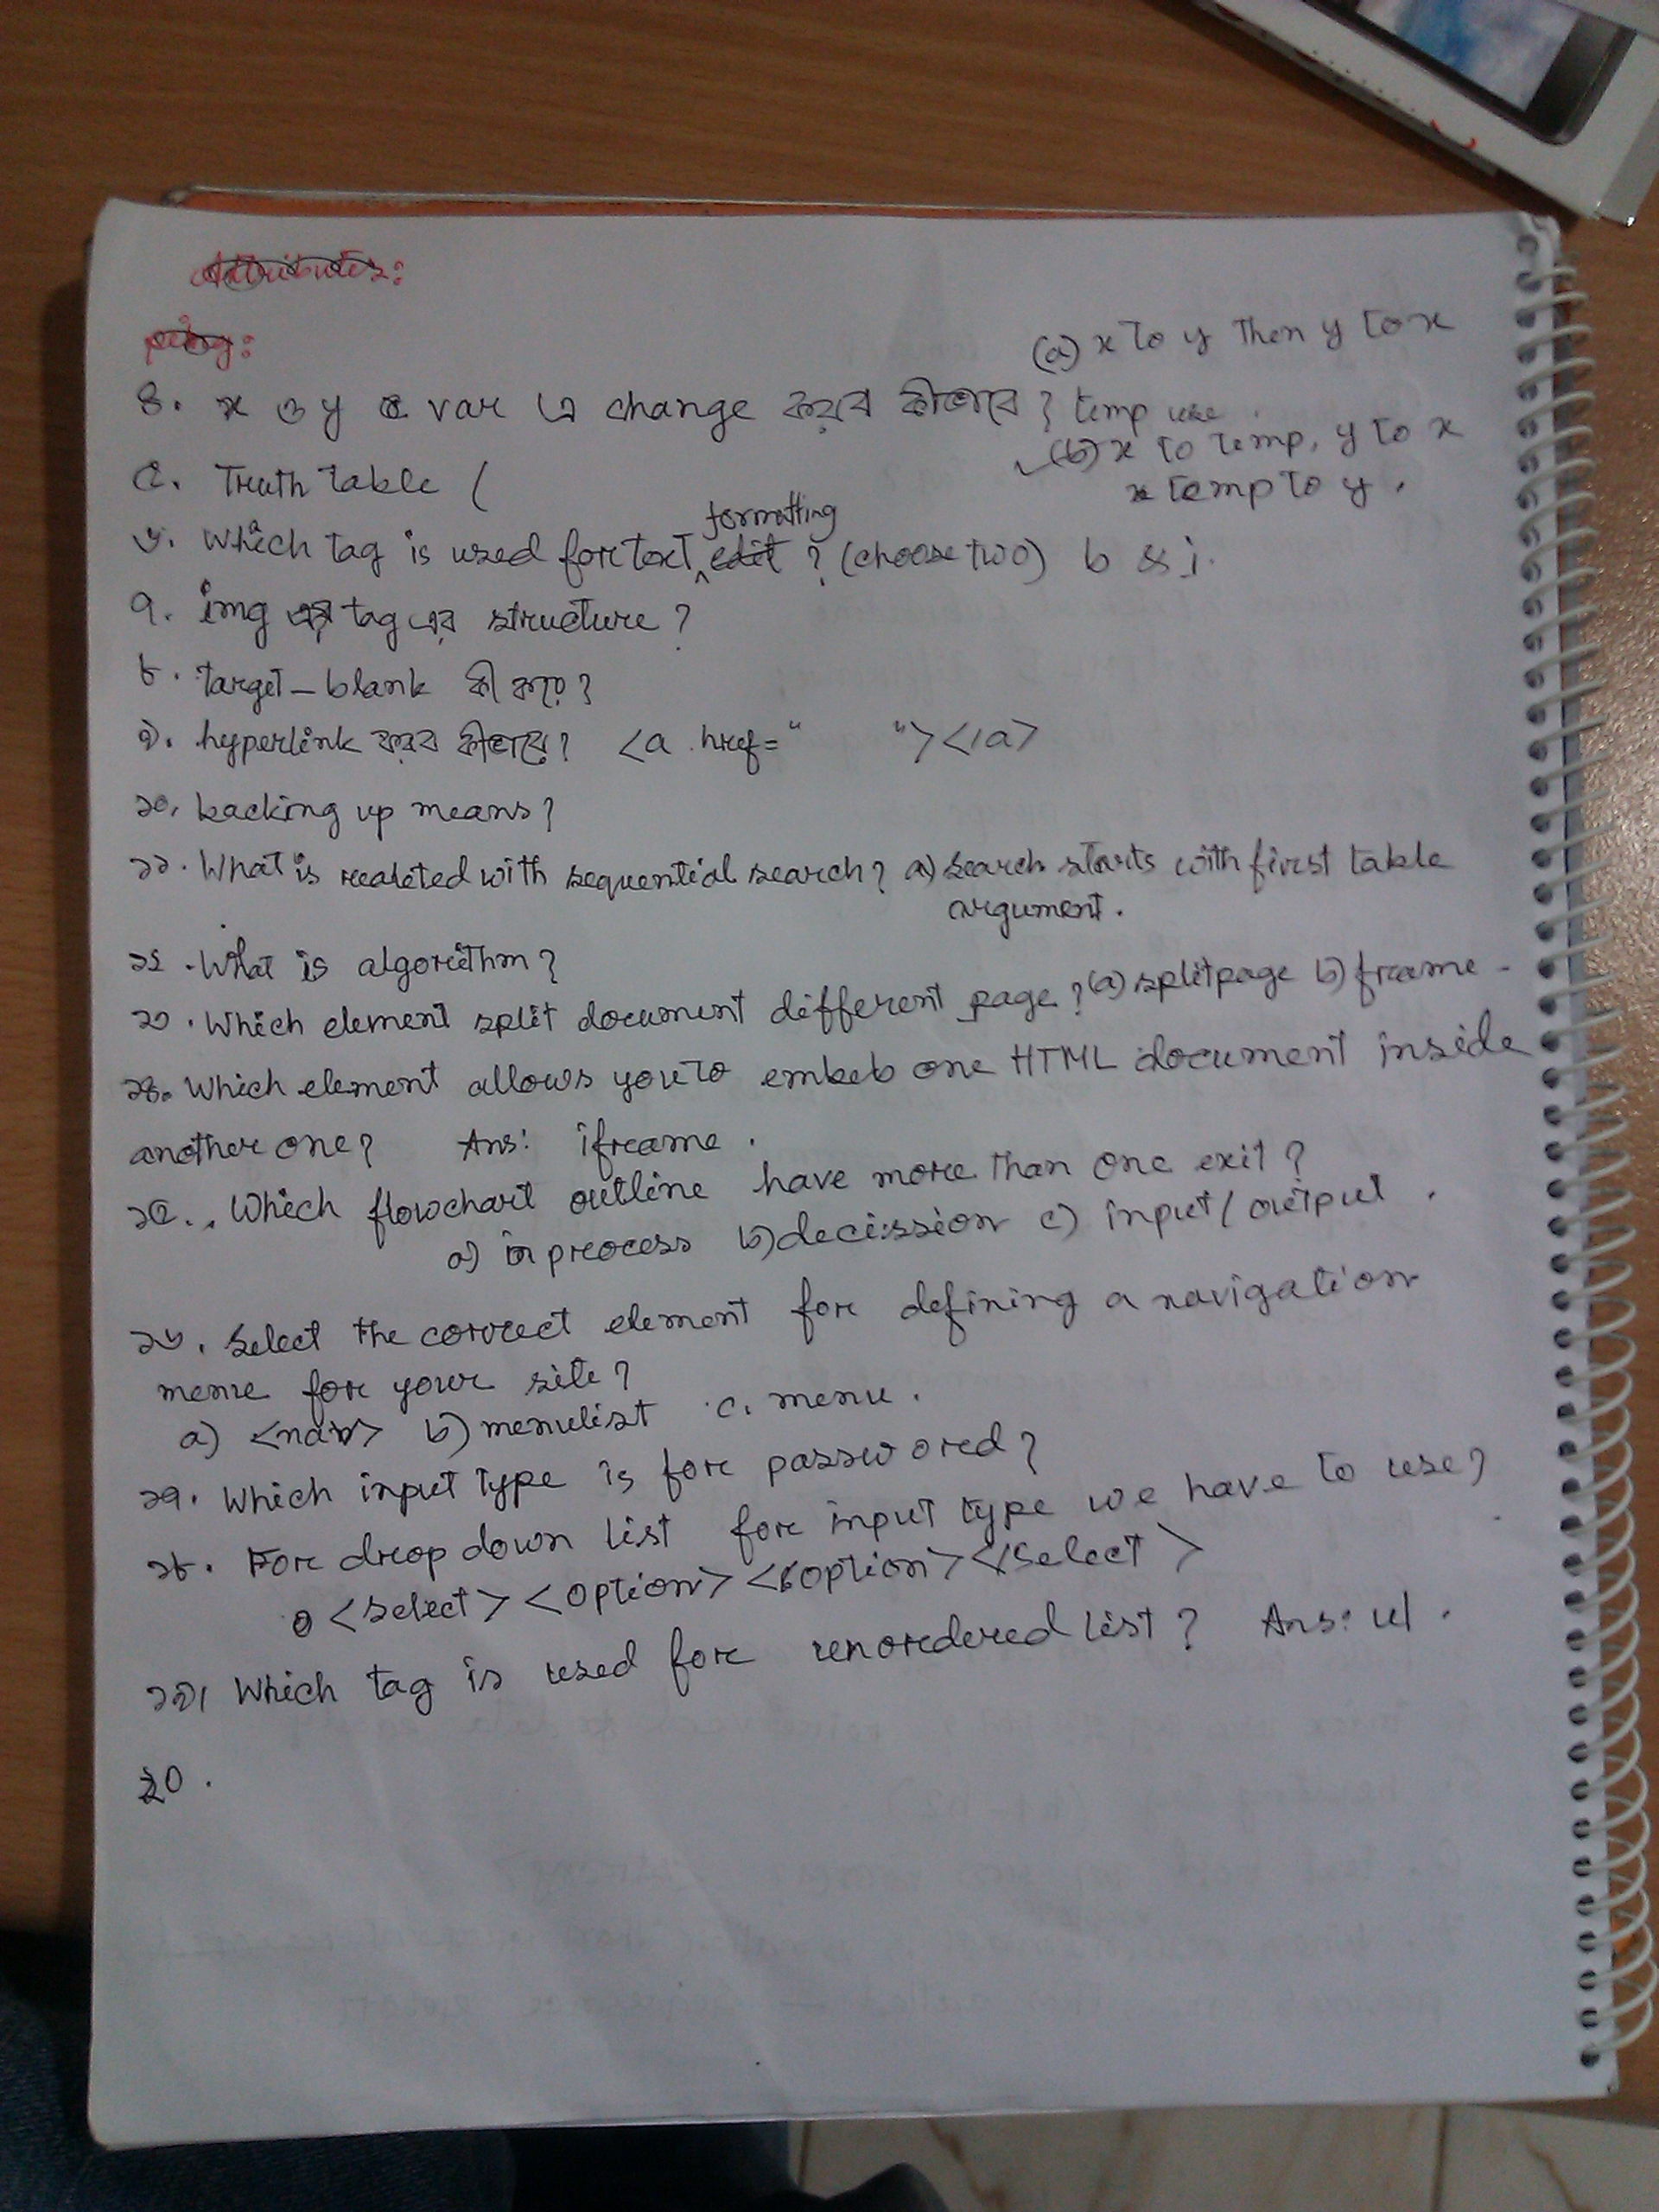 Attributes:
ping:
(a) x to y then y to x
৪. x ও y কে var এ change করব কীভাবে? temp use.
(b) x to temp, y to x
temp to y.
৫. Truth table (
৬. Which tag is used for text formatting edit? (choose two) b & i.
৭. img tag এর structure?
৮. target_blank কী করে?
৯. hyperlink করব কীভাবে? <a href=" "></a>
১০. backing up means?
১১. What is realeted with sequential search? a) search starts with first table
argument.
১২. What is algorithm?
১৩. Which element split document different page? (a) splitpage b) frame
১৪. Which element allows you to embeb one HTML document inside
another one? Ans: iframe.
১৫. Which flowchart outline have more than one exit?
a) process b) decission c) input/output.
১৬. Select the correct element for defining a navigation
menu for your site?
a) <nav> b) menulist c. menu.
১৭. Which input type is for password?
১৮. For drop down list for input type we have to use?
<select><option></option></select>
১৯। Which tag is used for unordered list? Ans: ul.
২০.